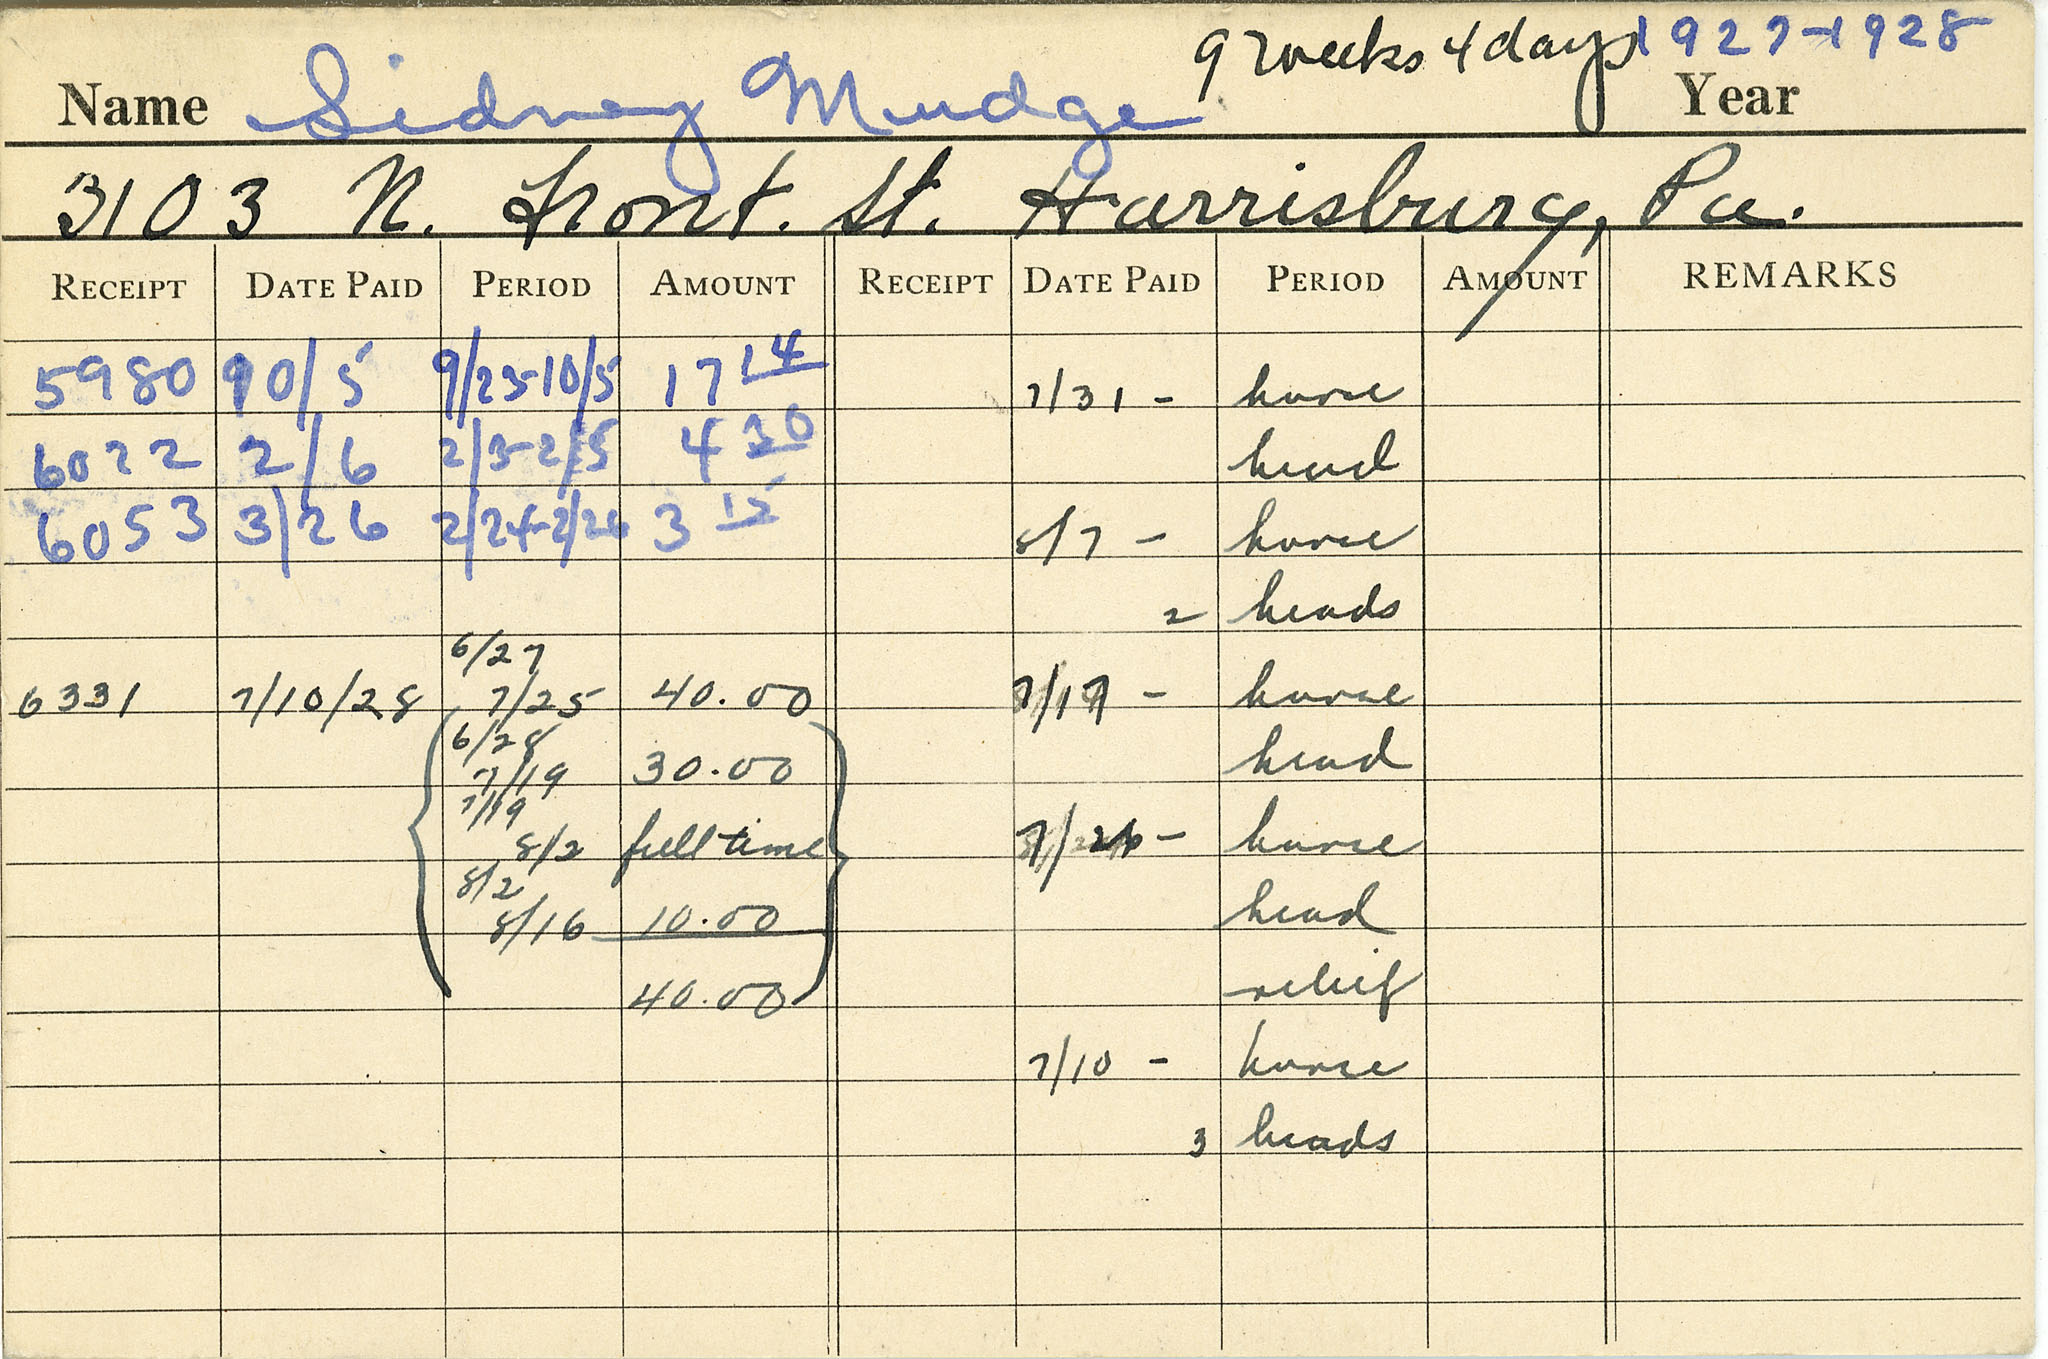 9 weeks 4 days 1927-1928
Name Sidney Mudge Year
3103 N. Front. St. Harrisburg, Pa.
RECEIPT DATE PAID PERIOD AMOUNT RECEIPT DATE PAID PERIOD AMOUNT REMARKS
5980 10/5 9/23-10/5 17 14 7/31 - horse
6022 2/6 2/3-2/5 4 30 head
6053 3/26 2/24-2/26 3 15 8/7 - horse
2 heads
6/27
6331 7/10/28 7/25 40.00 7/17 - horse
6/28
7/19 30.00 head
7/19
8/2 full time 7/26 - horse
8/2
8/16 10.00 head
40.00 relief
7/10 - horse
3 heads